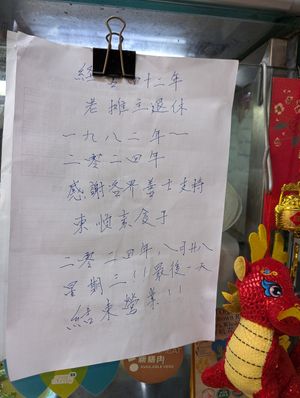 經 十二年
老攤主退休
一九八二年一
二零二四年
感謝各界善士支持
東恆素食子
二零二四年，八月廿八
星期三!!最後一天
結束營業!!
新膳肉
AVAILABLE HERE